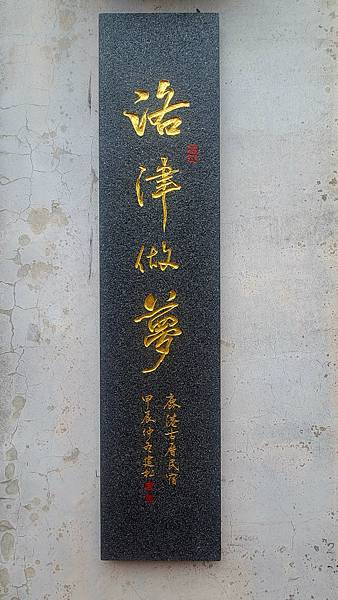 洛津做夢
鹿港古厝民宿
甲辰仲冬建松